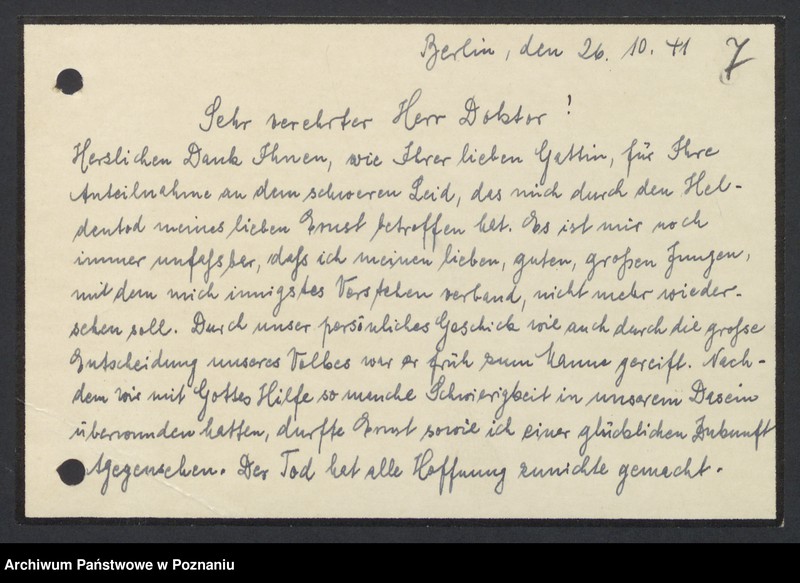 Berlin, den 26. 10. 41
7
Sehr verehrter Herr Doktor!
Herzlichen Dank Ihnen, wie Ihrer lieben Gattin, für Ihre
Anteilnahme an dem schweren Leid, das mich durch den Hel-
dentod meines lieben Ernst betroffen hat. Es ist mir noch
immer unfaßbar, daß ich meinen lieben, guten, großen Jungen,
mit dem mich innigstes Verstehen verband, nicht mehr wieder-
sehen soll. Durch unser persönliches Geschick wie auch durch die große
Entscheidung unseres Volkes war er früh zum Manne gereift. Nach-
dem wir mit Gottes Hilfe so manche Schwierigkeit in unserem Dasein
überwunden hatten, durfte Ernst sowie ich einer glücklichen Zukunft
tgegensehen. Der Tod hat alle Hoffnung zunichte gemacht.
Archiwum Państwowe w Poznaniu